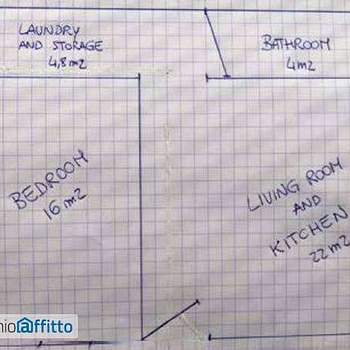 LAUNDRY
AND STORAGE
4,8m2
BATHROOM
4m2
BEDROOM
16 m2
LIVING ROOM
AND
KITCHEN
22 m2
nioaffitto